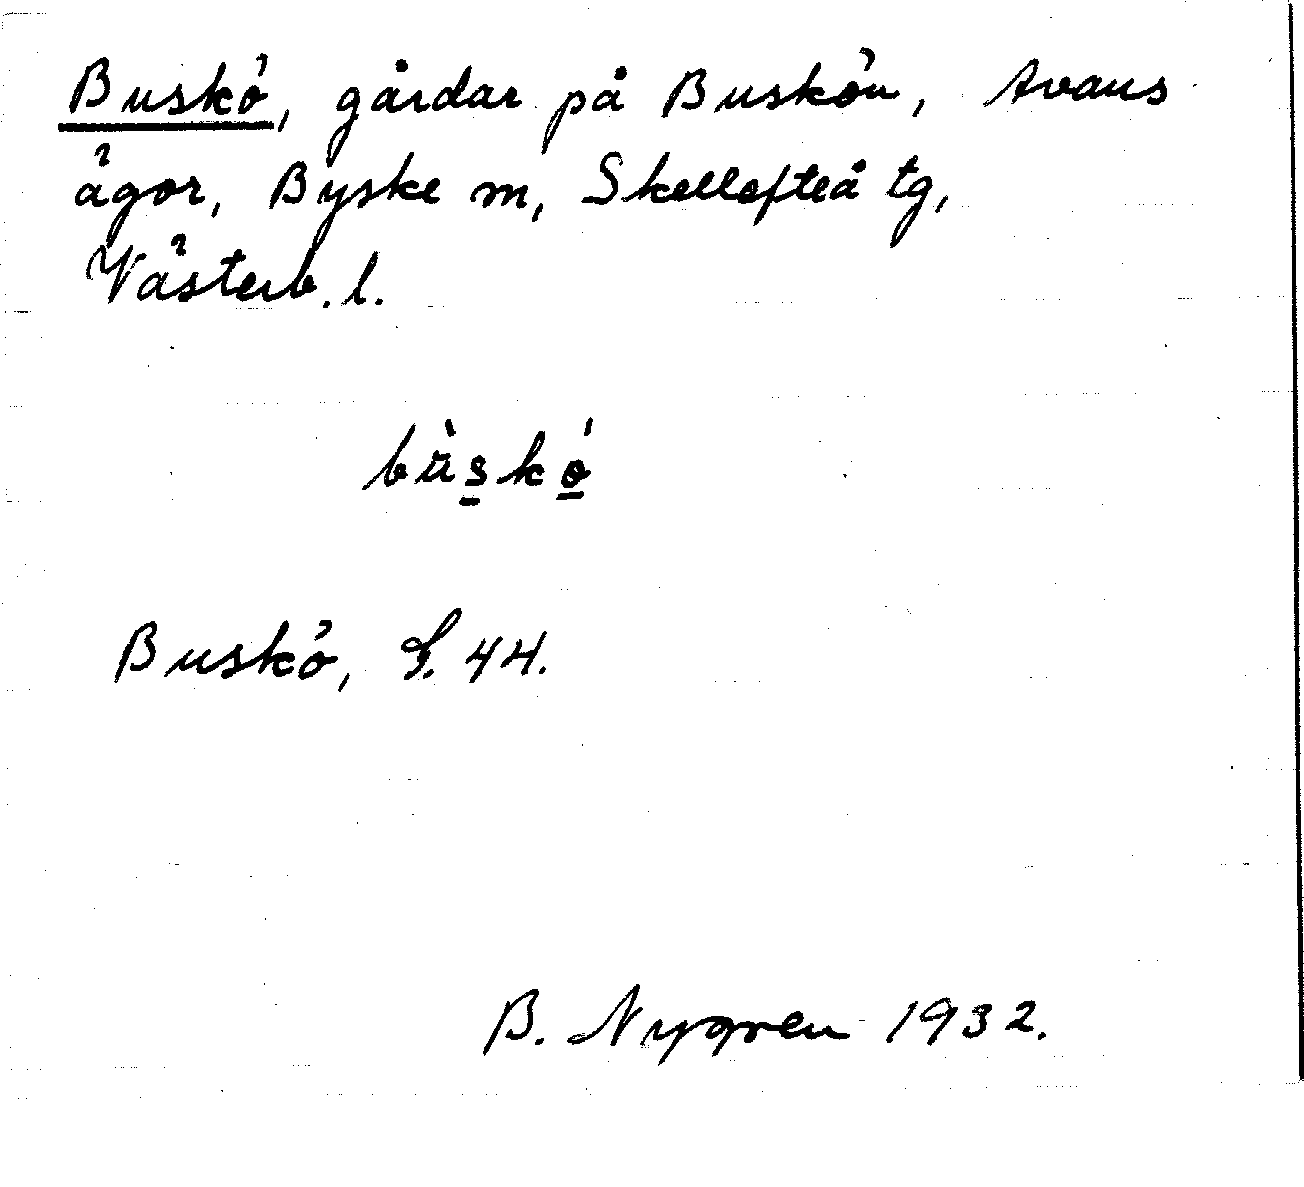 Buskö, gårdar på Buskön, Avans
ägor, Byske sn, Skellefteå tg,
Västerb. l.
bùskó
Buskö, G. 44.
B. Nygren 1932.